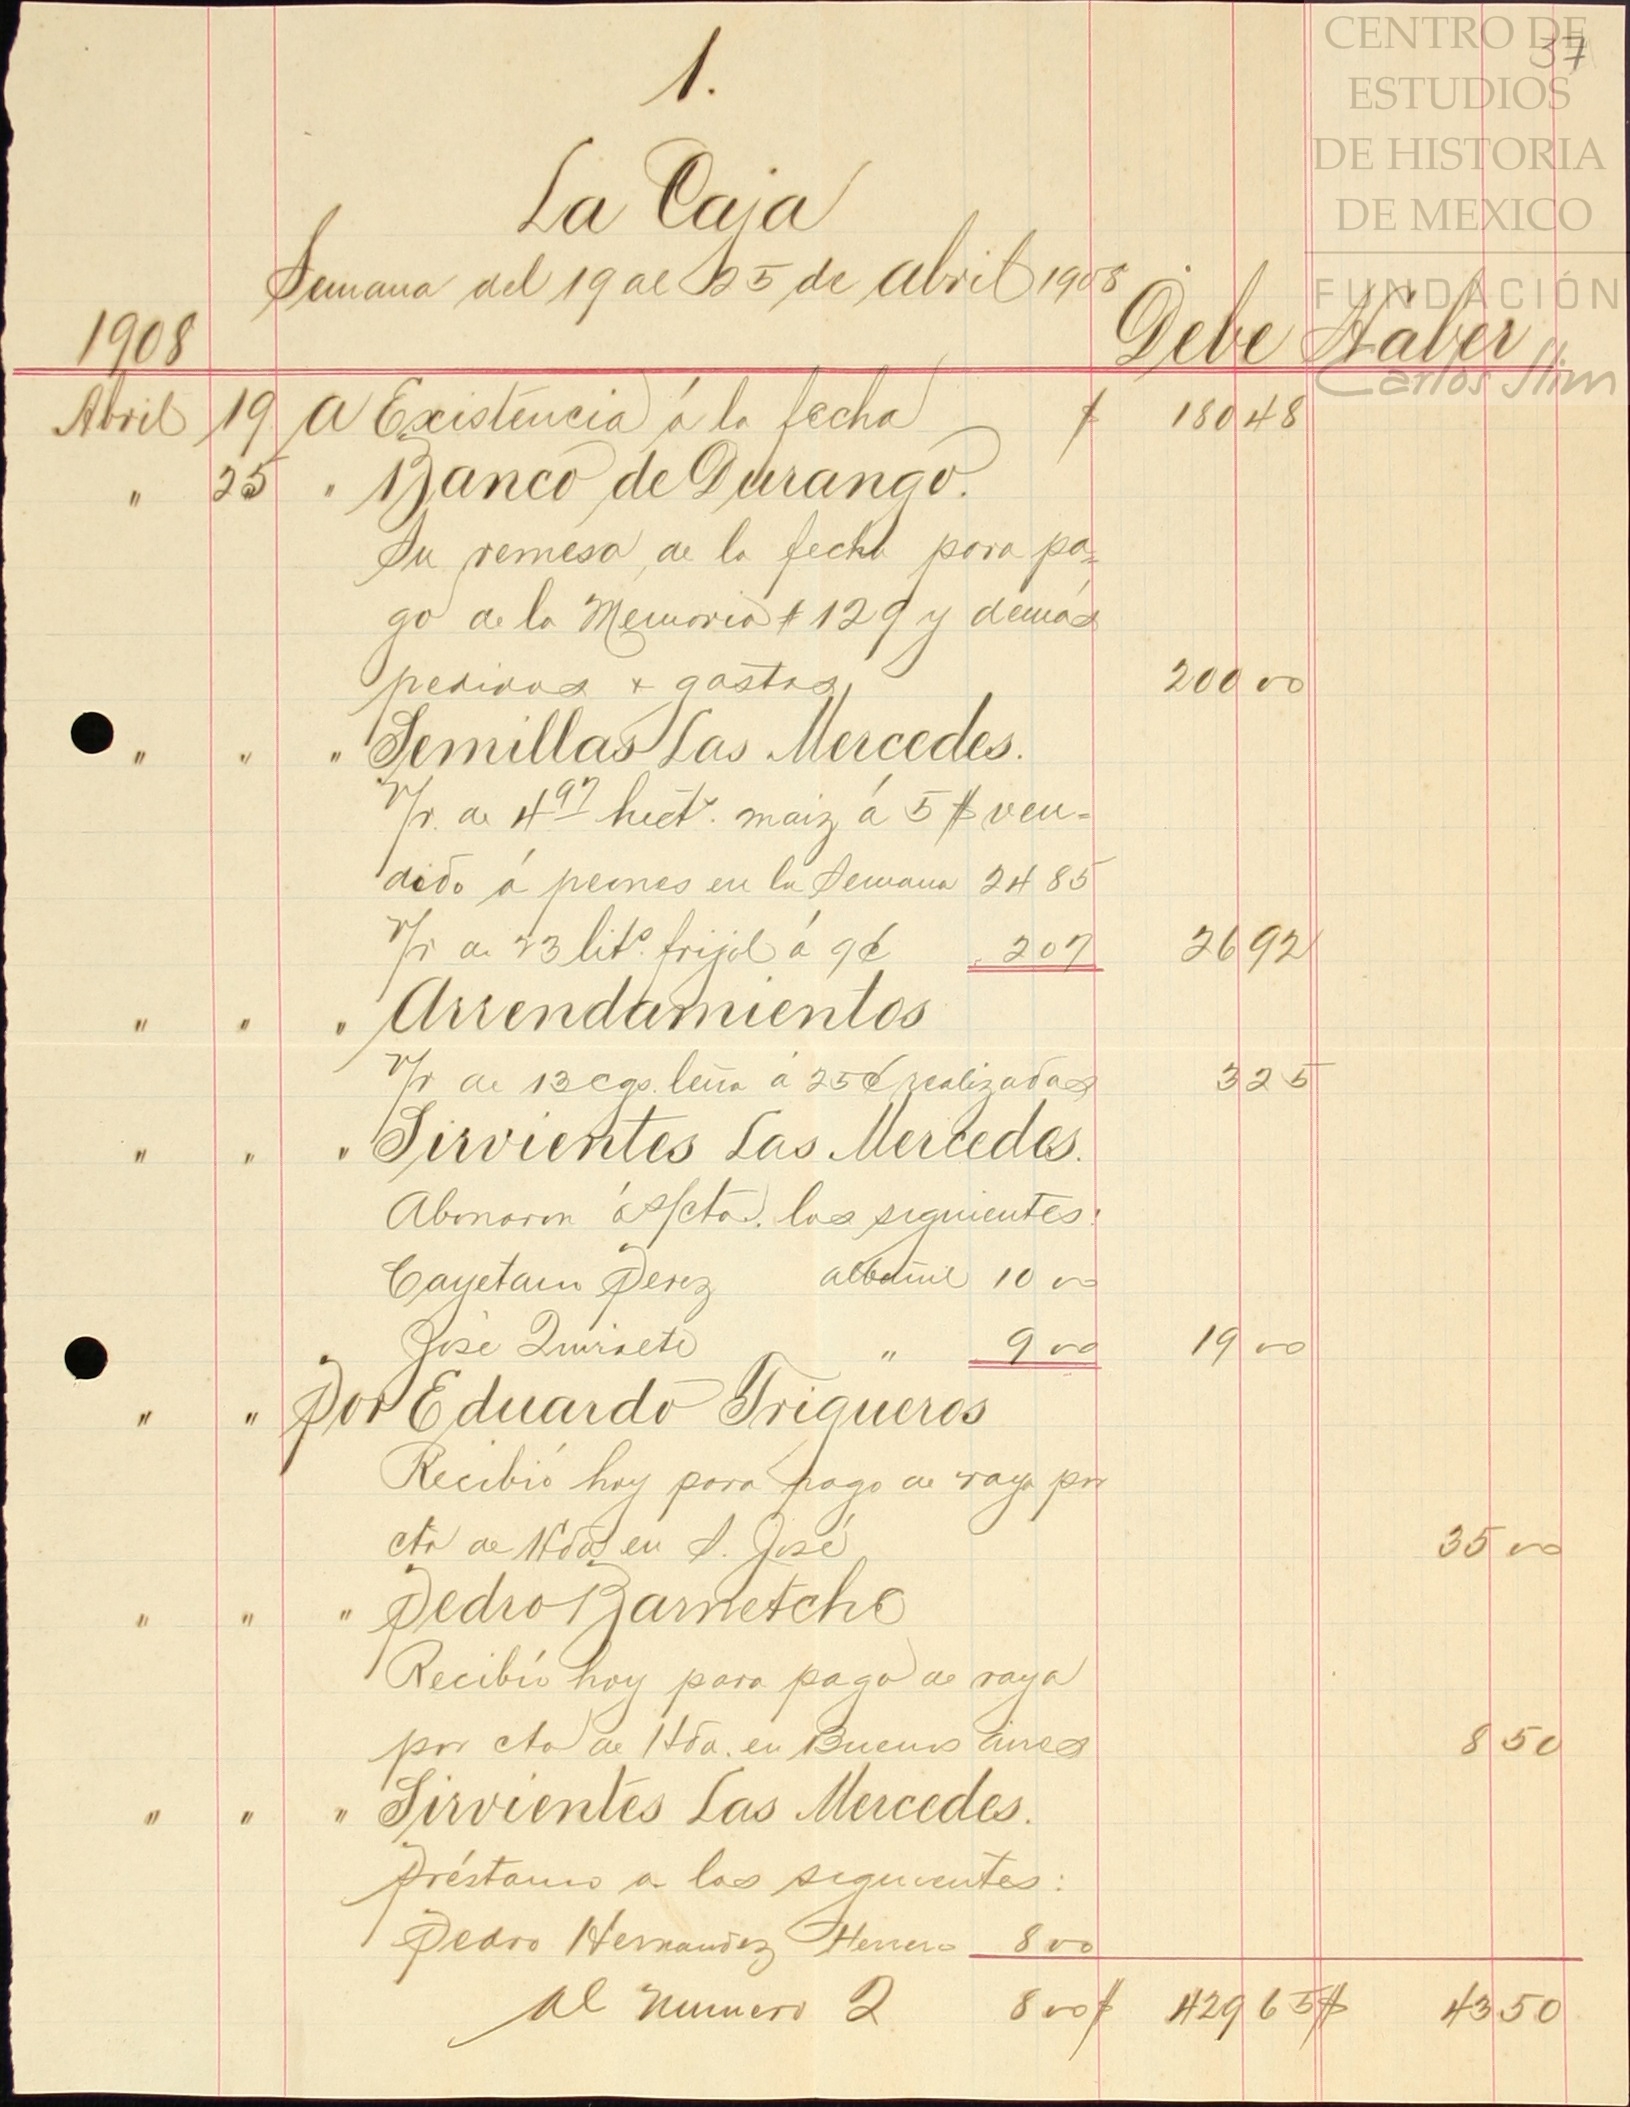 CENTRO DE
ESTUDIOS
DE HISTORIA
DE MEXICO
FUNDACIÓN
Carlos Slim
37
1.
La Caja
Semana del 19 al 25 de abril 1908
1908 Debe Haber
Abril 19 A Existencia á la fecha $ 180 48
" 25 " Banco de Durango.
Su remesa de la fecha para pa=
go de la Memoria # 129 y demás
pedidos & gastos 200 00
" " " Semillas Las Mercedes.
V/r. de 4 97 hect.s maiz á 5 $ ven=
dido á peones en la Semana 24 85
V/r de 23 lit.s frijol á 9¢ 2 07 26 92
" " " Arrendamientos
V/r de 13 cgs. leña á 25¢ realizadas 3 25
" " " Sirvientes Las Mercedes.
Abonaron á s/cta. los siguientes:
Cayetano Perez albañil 10 00
José " 9 00 19 00
" " Por Eduardo Trigueros
Recibió hoy para pago de raya por
cta de Hda en S. José 35 00
" " " Pedro Barnetche
Recibió hoy para pago de raya
por cta de Hda. en Buenos Aires 8 50
" " " Sirvientes Las Mercedes.
Préstamo a los siguientes:
Pedro Hernandez Herrero 8 00
Al Numero 2 8 00 $ 429 65 $ 43 50